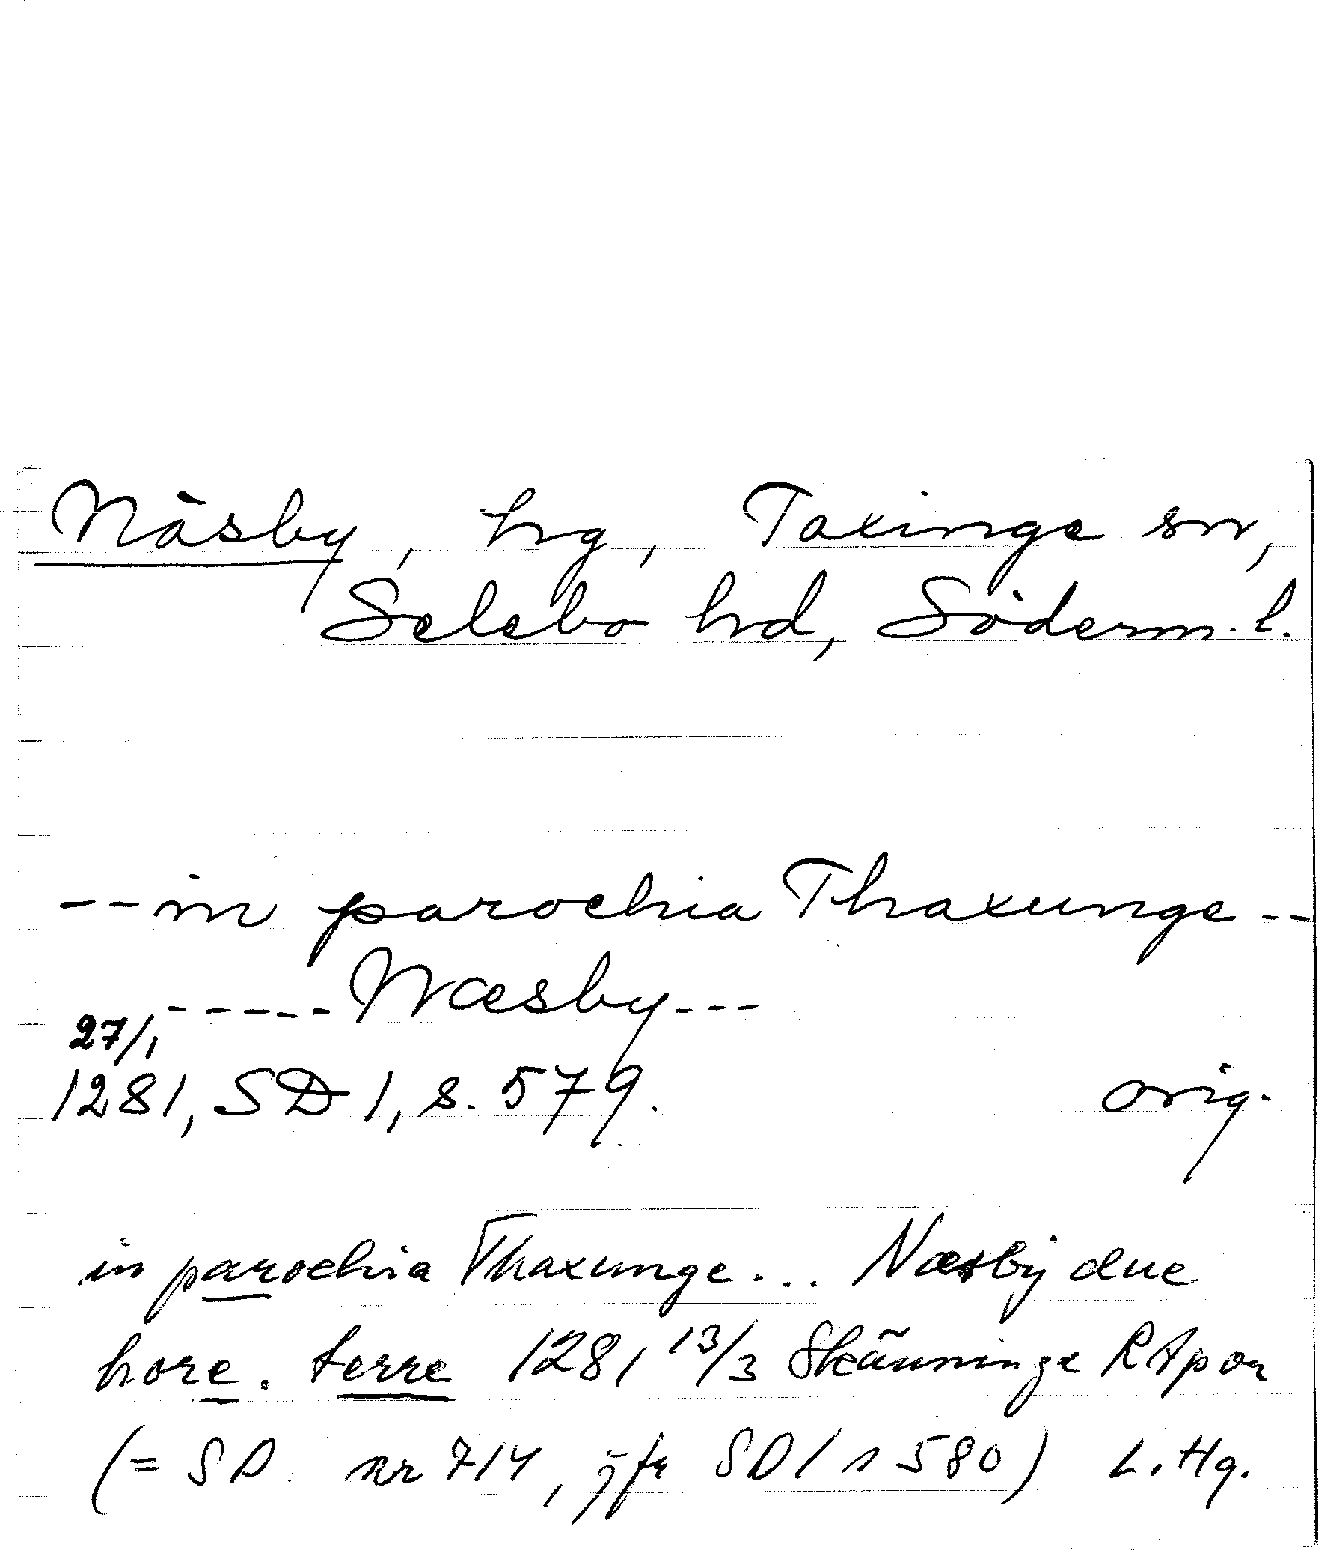 Näsby, hg, Taxinge sn,
Selebo hd, Söderm. l.
-- in parochia Thaxunge --
----- Næsby ---
27/1
1281, SD 1, s. 579. orig.
in parochia Thaxunge ... Næsby due
hore. terre 1281 13/3 Skänninge RApor
(= SD nr 714, jfr SD 1 s 580) L. Hg.